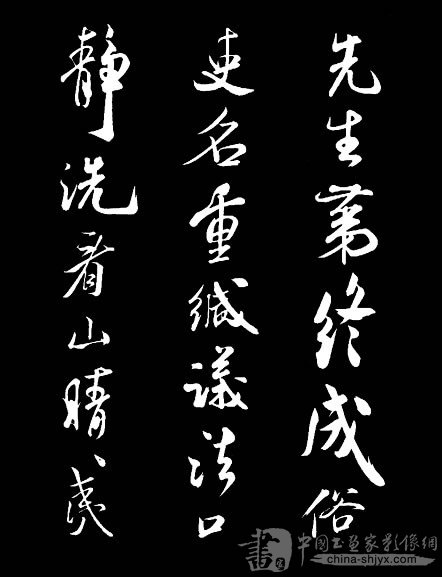 先生苐終成俗
吏名重緘議法口
靜洗看山晴
中國书画家影像網
china-shjyx.com